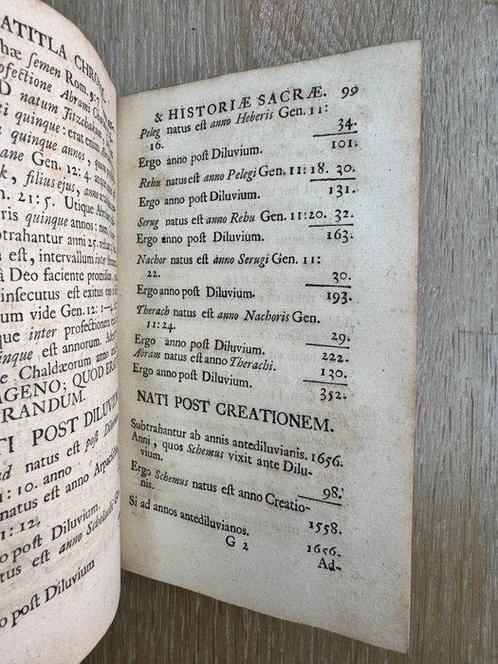 ATITLA CHRO
hæ semen Rom. 9:7
ofectione Abrami C
D natum Jitzchakum
ti quinque: erat enim
quinque annos,
ane Gen. 12:4.
k, filius ejus, anno
n. 21:5. Utique Abra
ris quinque annos:
btrahantur anni 25. re
us est, intervallum inter
à Deo faciente promiss
insecutus est exitus
um vide Gen. 12:1—
que inter profectionem
inque est annorum. A
Chaldæorum anno
AGENO; QUOD ERA
RANDUM.
TI POST DILUVIUM
ad natus est post Diluvi
1:10. anno
natus est anno Arpac
1:12,
o post Diluvium.
tus est anno
o post Diluvium
& HISTORIÆ SACRÆ. 99
Peleg natus est anno Heberis Gen. 11:
16. 34.
Ergo anno post Diluvium. 101.
Rehu natus est anno Pelegi Gen. 11: 18. 30.
Ergo anno post Diluvium. 131.
Serug natus est anno Rehu Gen. 11:20. 32.
Ergo anno post Diluvium. 163.
Nachor natus est anno Serugi Gen. 11:
22. 30.
Ergo anno post Diluvium. 193.
Therach natus est anno Nachoris Gen.
11:24. 29.
Ergo anno post Diluvium. 222.
Abram natus est anno Therachi. 130.
Ergo anno post Diluvium. 352.
NATI POST CREATIONEM.
Subtrahantur ab annis antediluvianis. 1656.
Anni, quos Schemus vixit ante Dilu-
vium. 98.
Ergo Schemus natus est anno Creatio-
nis. 1558.
Si ad annos antediluvianos. 1656.
G 2
Ad-